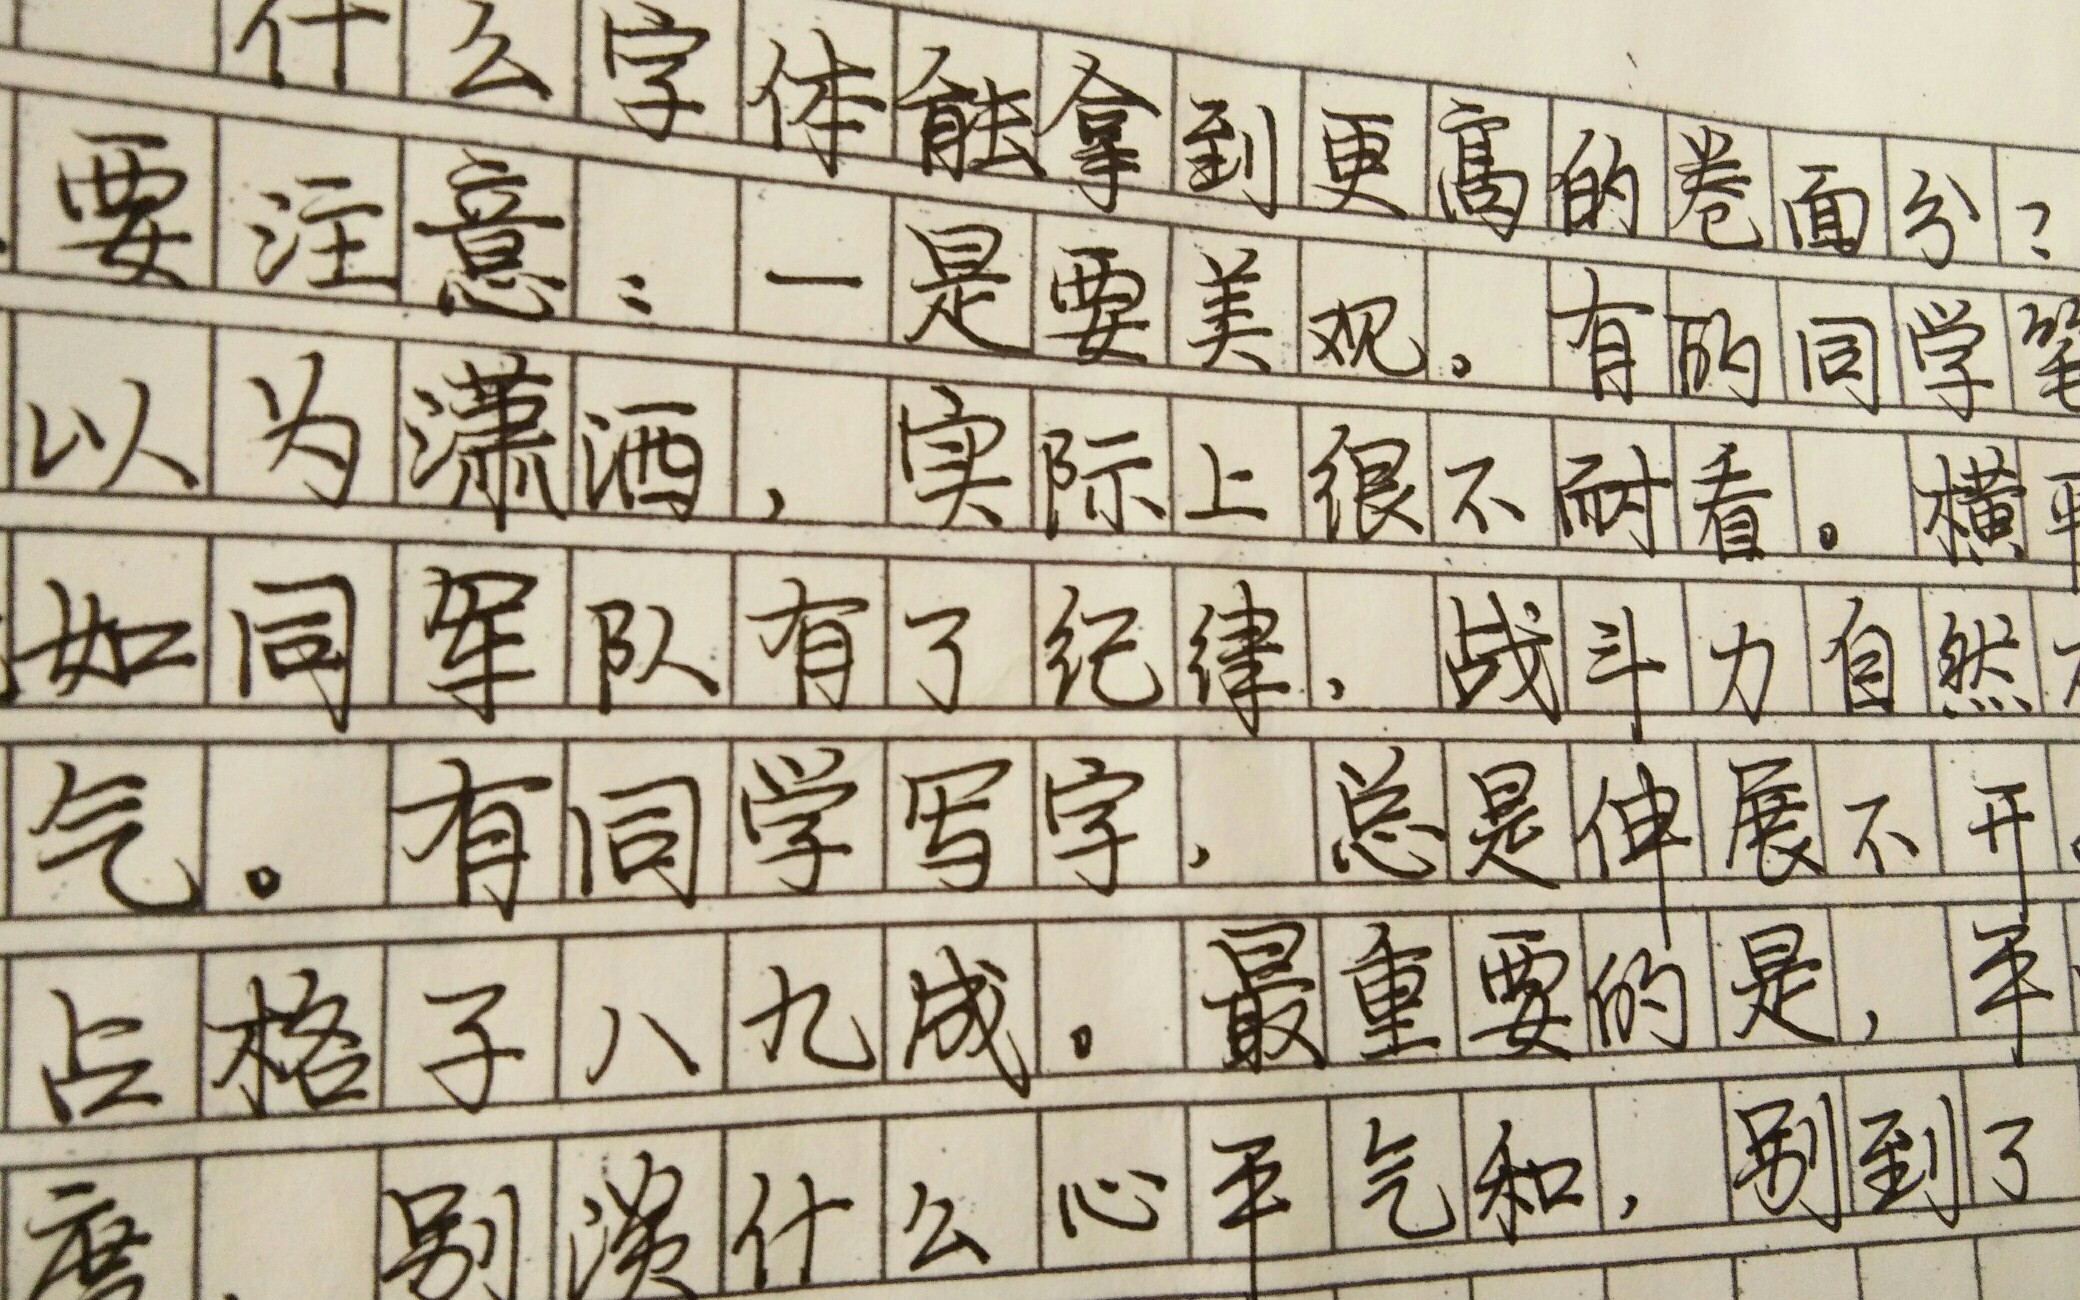 什么字体能拿到更高的卷面分？
要注意：一是要美观。有的同学笔
以为潇洒，实际上很不耐看。横平
如同军队有了纪律，战斗力自然
气。有同学写字，总是伸展不开。
占格子八九成。最重要的是，平
度，别谈什么心平气和，别到了